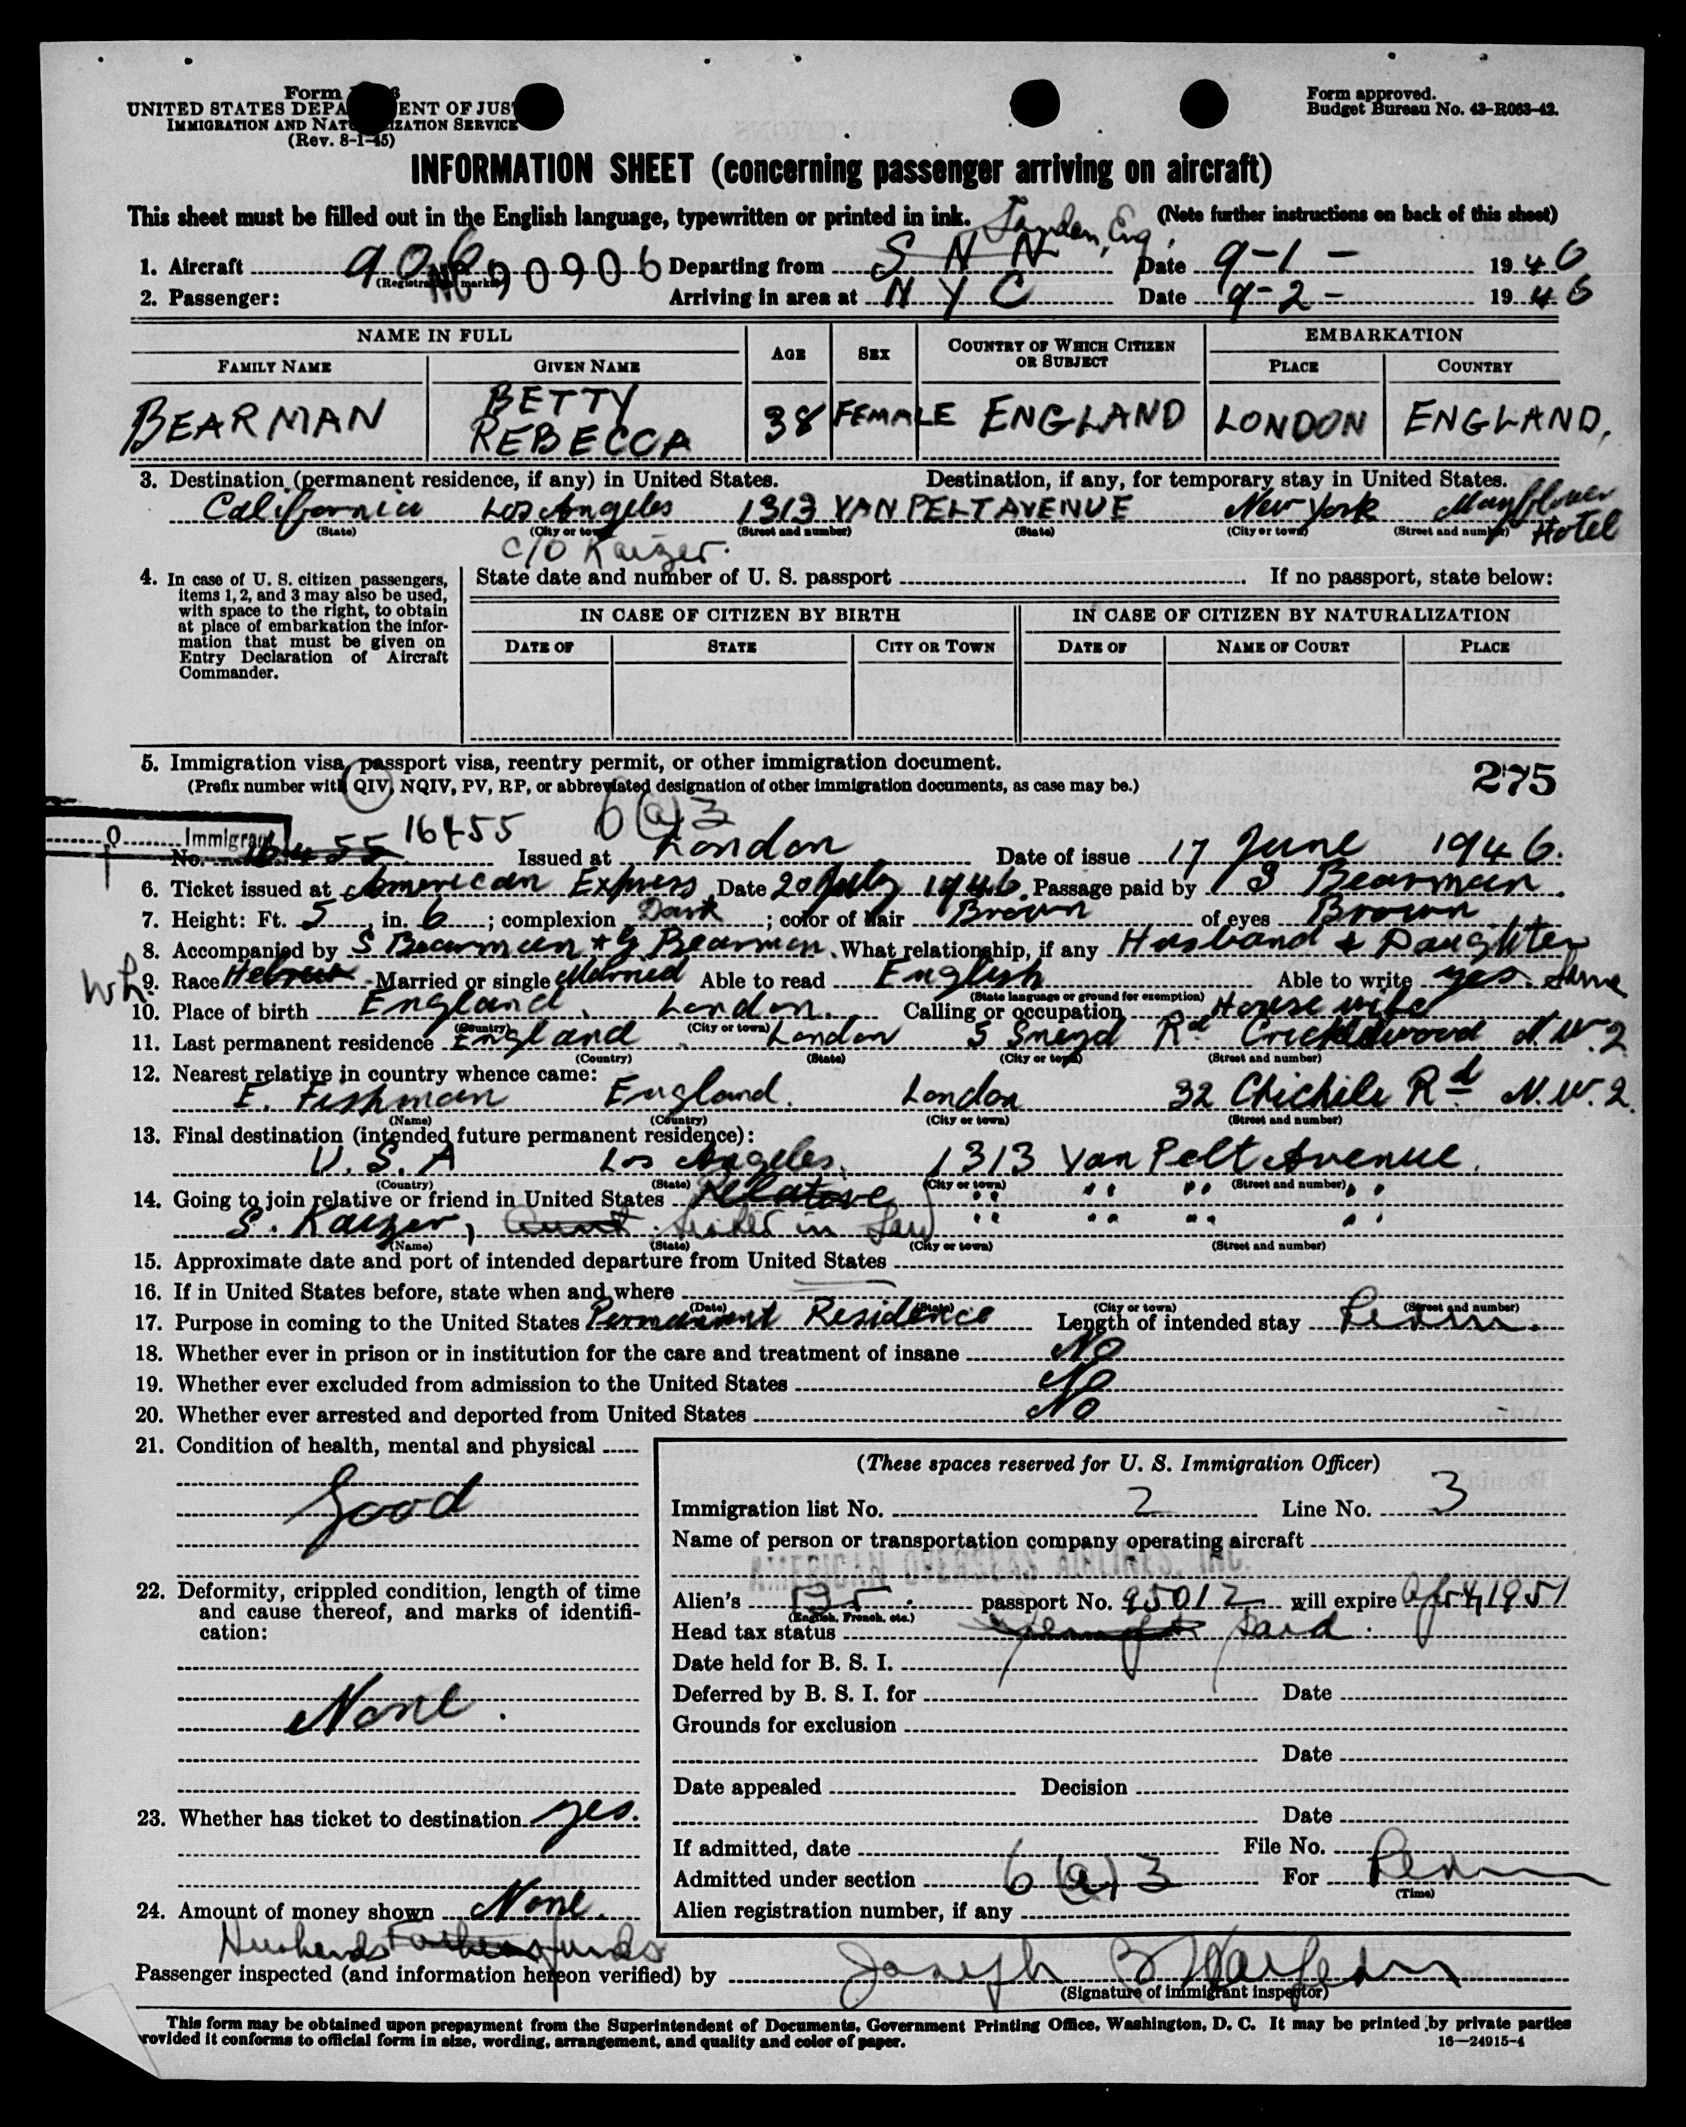 Form
UNITED STATES DEPA ENT OF JUS
IMMIGRATION AND NAT IZATION SERVICE
(Rev. 8-1-45)
Form approved.
Budget Bureau No. 43-R063-42.
INFORMATION SHEET (concerning passenger arriving on aircraft)
This sheet must be filled out in the English language, typewritten or printed in ink. (Note further instructions on back of this sheet)
London, Eng.
1. Aircraft 906 NC 90906 Departing from SNN Date 9-1- 1946
(Registration marks)
2. Passenger: Arriving in area at NYC Date 9-2- 1946
NAME IN FULL AGE SEX COUNTRY OF WHICH CITIZEN OR SUBJECT EMBARKATION
FAMILY NAME GIVEN NAME PLACE COUNTRY
BEARMAN BETTY REBECCA 38 FEMALE ENGLAND LONDON ENGLAND,
3. Destination (permanent residence, if any) in United States. Destination, if any, for temporary stay in United States.
California Los Angeles 1313 VAN PELT AVENUE New York Mayflower Hotel
(State) (City or town) (Street and number) (State) (City or town) (Street and number)
c/o Kaizer.
4. In case of U. S. citizen passengers, items 1, 2, and 3 may also be used, with space to the right, to obtain at place of embarkation the information that must be given on Entry Declaration of Aircraft Commander.
State date and number of U. S. passport . If no passport, state below:
IN CASE OF CITIZEN BY BIRTH IN CASE OF CITIZEN BY NATURALIZATION
DATE OF STATE CITY OR TOWN DATE OF NAME OF COURT PLACE
5. Immigration visa, passport visa, reentry permit, or other immigration document.
(Prefix number with QIV, NQIV, PV, RP, or abbreviated designation of other immigration documents, as case may be.)
275
Q Immigrant 16455 6(a)3
No. 16455 Issued at London Date of issue 17 June 1946.
6. Ticket issued at American Express Date 20 July 1946. Passage paid by S Bearman.
7. Height: Ft. 5, in. 6; complexion Dark; color of hair Brown of eyes Brown
8. Accompanied by S Bearman + G Bearman. What relationship, if any Husband & Daughter
Wh.
9. Race Hebrew Married or single Married Able to read English Able to write yes. Same
(State language or ground for exemption)
10. Place of birth England, London. Calling or occupation Housewife
(Country) (City or town)
11. Last permanent residence England London 5 Sneyd Rd Cricklewood N.W.2
(Country) (State) (City or town) (Street and number)
12. Nearest relative in country whence came:
E. Fishman England. London 32 Chichile Rd N.W.2.
(Name) (Country) (City or town) (Street and number)
13. Final destination (intended future permanent residence):
U.S.A Los Angeles, 1313 Van Pelt Avenue.
(Country) (State) (City or town) (Street and number)
14. Going to join relative or friend in United States Relative " " " " "
S. Kaizer, Aunt sister in law " " " "
(Name) (State) (City or town) (Street and number)
15. Approximate date and port of intended departure from United States
16. If in United States before, state when and where
(Date) (State) (City or town) (Street and number)
17. Purpose in coming to the United States Permanent Residence Length of intended stay Perm.
18. Whether ever in prison or in institution for the care and treatment of insane No
19. Whether ever excluded from admission to the United States No
20. Whether ever arrested and deported from United States No
21. Condition of health, mental and physical
Good
22. Deformity, crippled condition, length of time and cause thereof, and marks of identification:
None.
23. Whether has ticket to destination yes.
24. Amount of money shown None.
Husbands Fathers funds
(These spaces reserved for U. S. Immigration Officer)
Immigration list No. 2 Line No. 3
Name of person or transportation company operating aircraft
AMERICAN OVERSEAS AIRLINES, INC.
Alien's Br. passport No. 95012 will expire Apr 4, 1951
(English, French, etc.)
Head tax status paid.
Date held for B. S. I.
Deferred by B. S. I. for Date
Grounds for exclusion
Date
Date appealed Decision
Date
If admitted, date File No.
Admitted under section 6(a)3 For Perm
(Time)
Alien registration number, if any
Passenger inspected (and information hereon verified) by Joseph B
(Signature of immigrant inspector)
This form may be obtained upon prepayment from the Superintendent of Documents, Government Printing Office, Washington, D. C. It may be printed by private parties
rovided it conforms to official form in size, wording, arrangement, and quality and color of paper.
16—24915-4